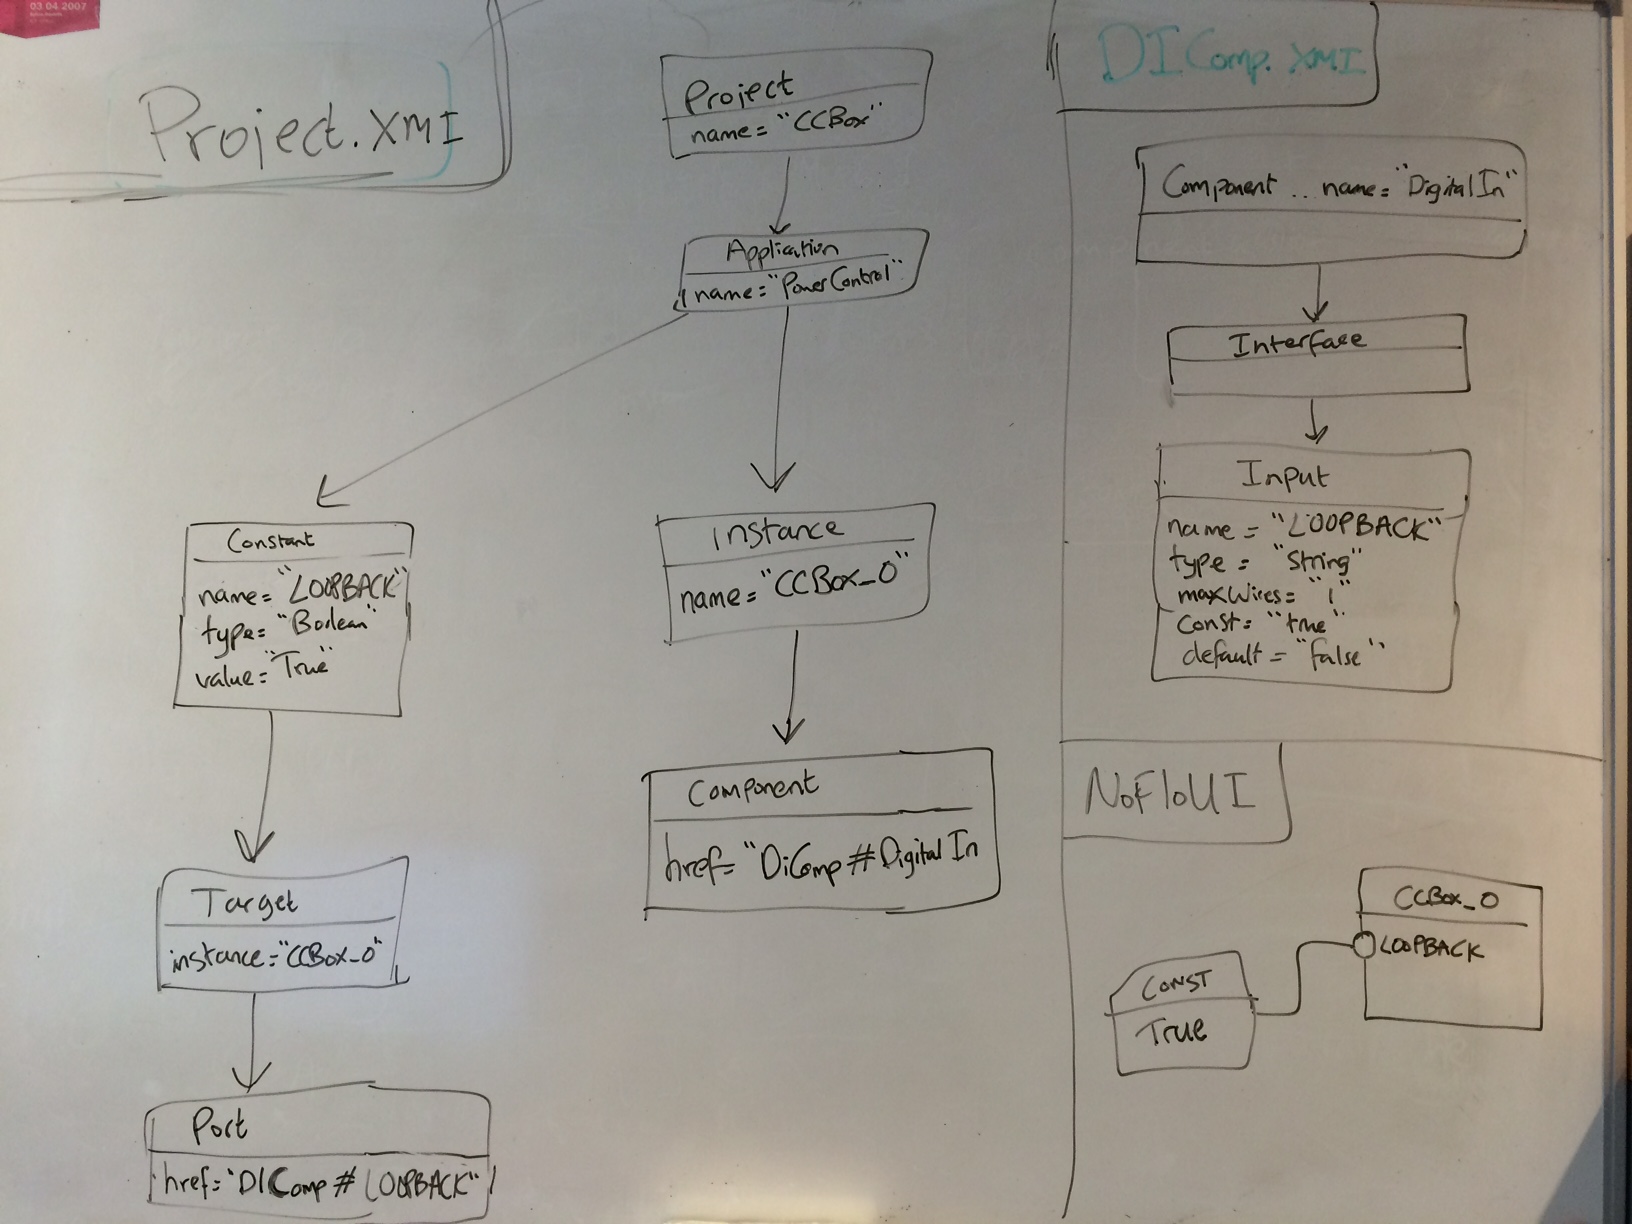 03 04 2007
Project.XMI
Project
name= "CCBox"
Application
name="PowerControl"
Constant
name="LOOPBACK"
type="Boolean"
value="True"
Target
instance="CCBox_0"
Port
href="DIComp#LOOPBACK"
instance
name="CCBox_0"
Component
href="DiComp#DigitalIn
DIComp.XMI
Component .. name="DigitalIn"
Interface
Input
name = "LOOPBACK"
type = "String"
maxWires= "1"
const= "true"
default = "false"
NoFloUI
CCBox_0
LOOPBACK
CONST
True